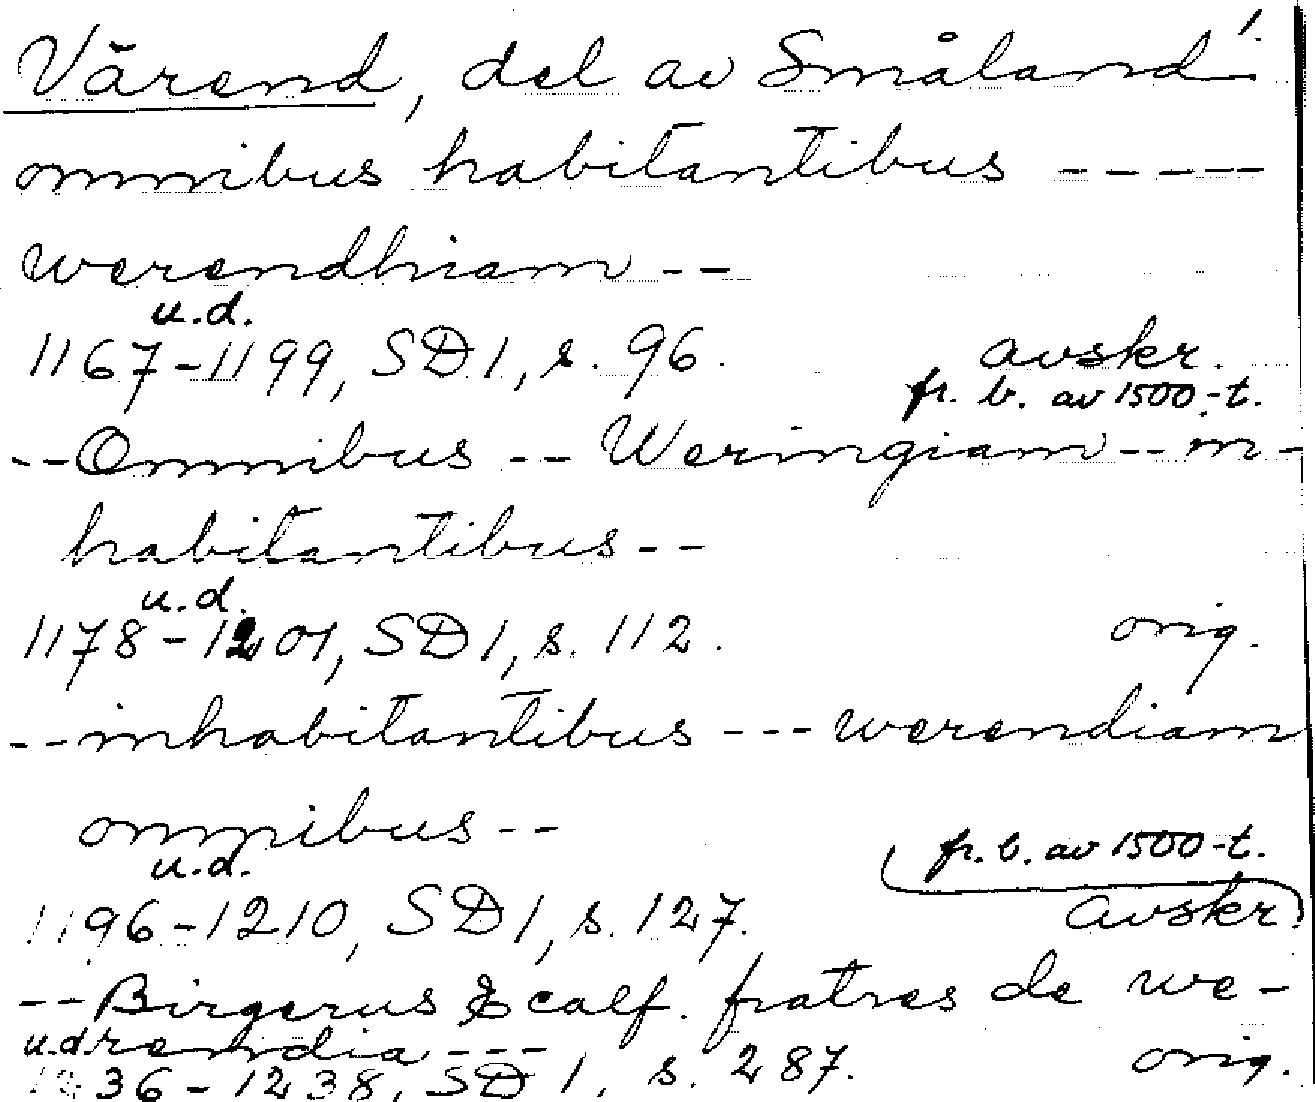 Värend, del av Småland 1.
omnibus habitantibus -----
werendhiam --
u.d.
1167-1199, SD 1, s. 96. avskr.
fr. b. av 1500-t.
-- Omnibus -- Weringiam -- in-
habitantibus --
u.d.
1178-1201, SD 1, s. 112. orig.
-- inhabitantibus --- werendiam
omnibus --
u.d. fr. b. av 1500-t.
1196-1210, SD 1, s. 127. avskr.
-- Birgerus & calf. fratres de we-
rendia ---
u.d.
1236-1238, SD 1, s. 287. orig.